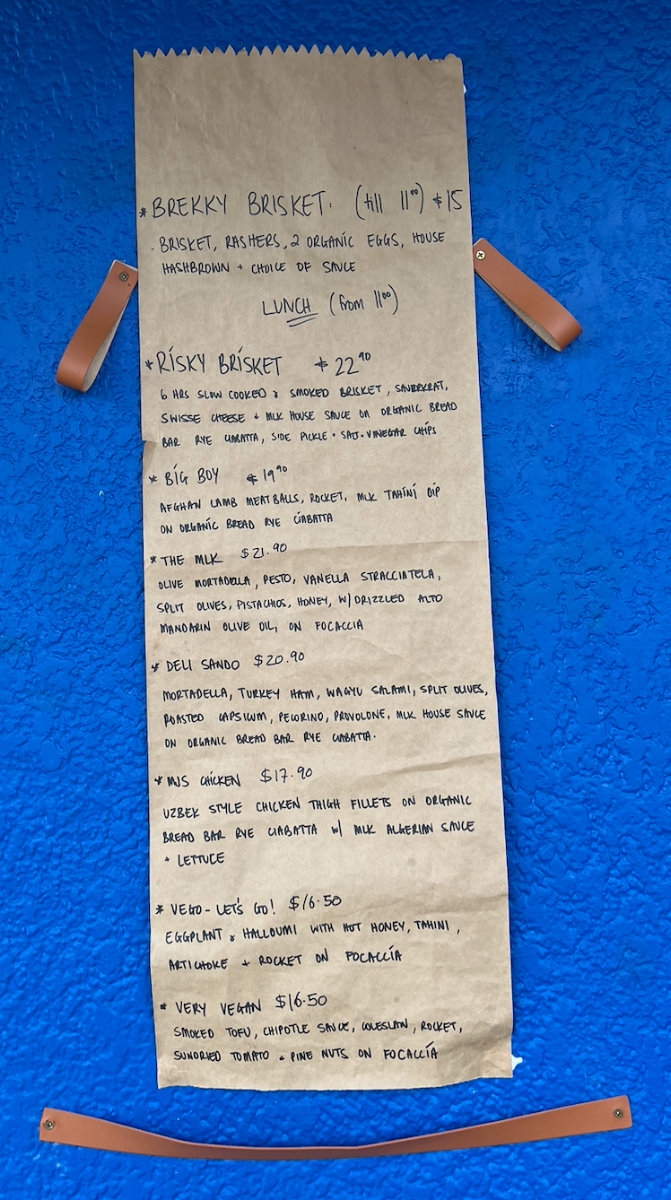 * BREKKY BRISKET: (till 11⁰⁰) $15
· BRISKET, RASHERS, 2 ORGANIC EGGS, HOUSE
HASHBROWN + CHOICE OF SAUCE
LUNCH (from 11⁰⁰)
* RISKY BRISKET $22⁹⁰
6 HRS SLOW COOKED & SMOKED BRISKET, SAUERKRAT,
SWISSE CHEESE + MLK HOUSE SAUCE ON ORGANIC BREAD
BAR RYE CIABATTA, SIDE PICKLE + SALT+VINEGAR CHIPS
* BIG BOY $19⁹⁰
AFGHAN LAMB MEATBALLS, ROCKET, MLK TAHINI DIP
ON ORGANIC BREAD RYE CIABATTA
* THE MLK $21.90
OLIVE MORTADELLA, PESTO, VANELLA STRACCIATELA,
SPLIT OLIVES, PISTACHIOS, HONEY, W/ DRIZZLED ALTO
MANDARIN OLIVE OIL, ON FOCACCIA
* DELI SANDO $20.90
MORTADELLA, TURKEY HAM, WAGYU SALAMI, SPLIT OLIVES,
ROASTED CAPSICUM, PECORINO, PROVOLONE, MLK HOUSE SAUCE
ON ORGANIC BREAD BAR RYE CIABATTA.
* MJS CHICKEN $17.90
UZBEK STYLE CHICKEN THIGH FILLETS ON ORGANIC
BREAD BAR RYE CIABATTA W/ MLK ALGERIAN SAUCE
+ LETTUCE
* VEGO - LET'S GO! $16.50
EGGPLANT & HALLOUMI WITH HOT HONEY, TAHINI,
ARTICHOKE + ROCKET ON FOCACCIA
* VERY VEGAN $16.50
SMOKED TOFU, CHIPOTLE SAUCE, COLESLAW, ROCKET,
SUNDRIED TOMATO + PINE NUTS ON FOCACCIA